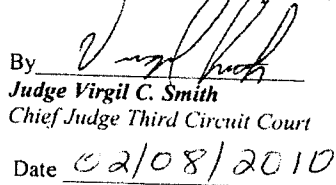 By Virgil Smith
Judge Virgil C. Smith
Chief Judge Third Circuit Court
Date 02/08/2010